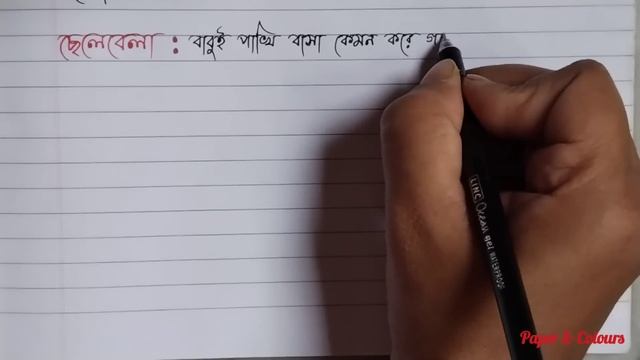 ছেলেবেলা : বাবুই পাখি বাসা কেমন করে
LINC Ocean GEL WATERPROOF
Paper & Colours